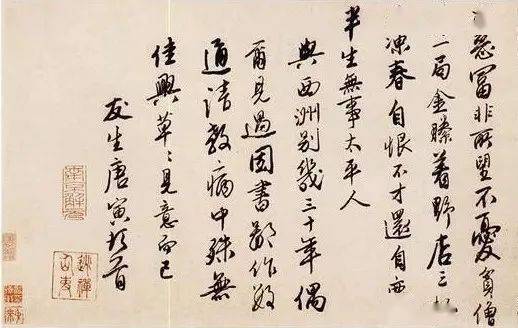 富非所望不憂貧僧
局金縢着野店三
凍春自恨不才還自
半生無事太平人
與西洲別幾三十年偶
爾見過因書鄙作
請教病中殊無
佳興草〻見意而已
友生唐寅頓首
南京解元